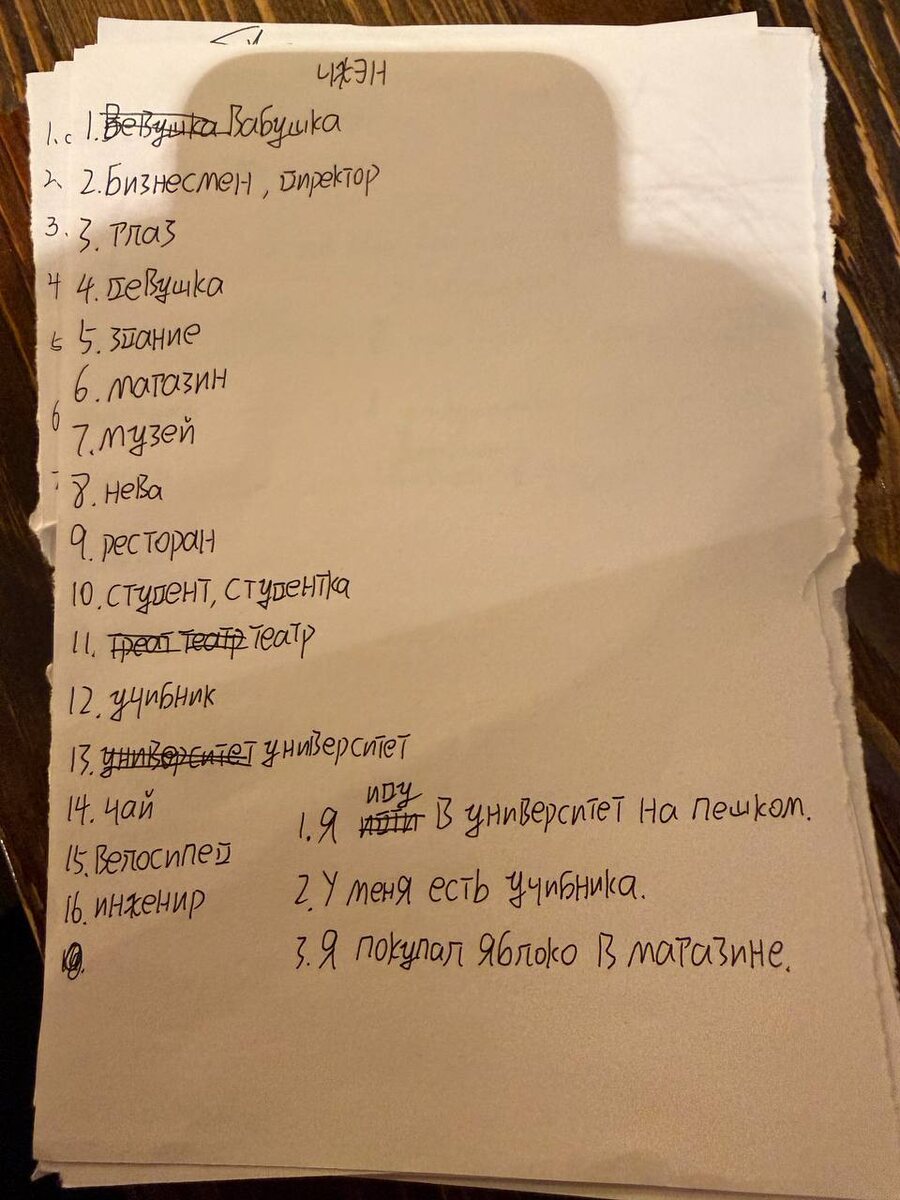 ЧЖЭН
1. Вевушка Вабушка
2. Бизнесмен, директор
3. глаз
4. девушка
5. здание
6. магазин
7. музей
8. нева
9. ресторан
10. студент, студентка
11. треат театр театр
12. учибник
13. университет университет
14. чай
15. Велосипед
16. инженир
иду
1. Я идти в университет на пешком.
2. У меня есть учибника.
3. Я покупал яблоко в магазине.